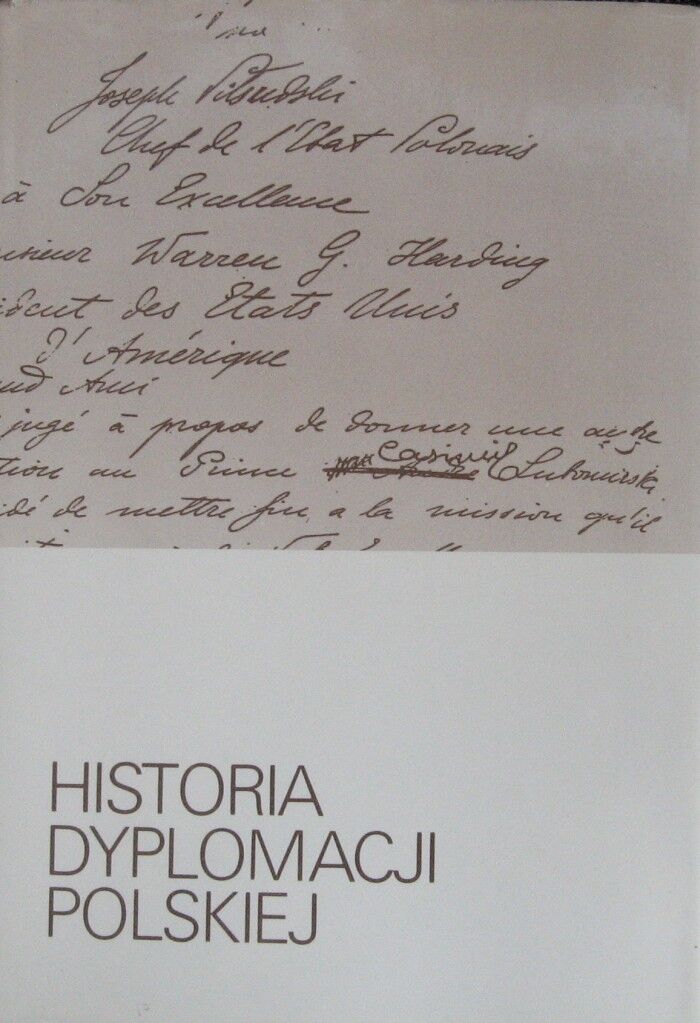 Joseph Pilsudski
Chef de l'Etat Polonais
à Son Excellence
nsieur Warren G. Harding
ident des Etats Unis
d'Amérique
and Ami
jugé à propos de donner une autre
tion au Prince Casimir Lubomirski
idé de mettre fin, a la mission qu'il
HISTORIA
DYPLOMACJI
POLSKIEJ